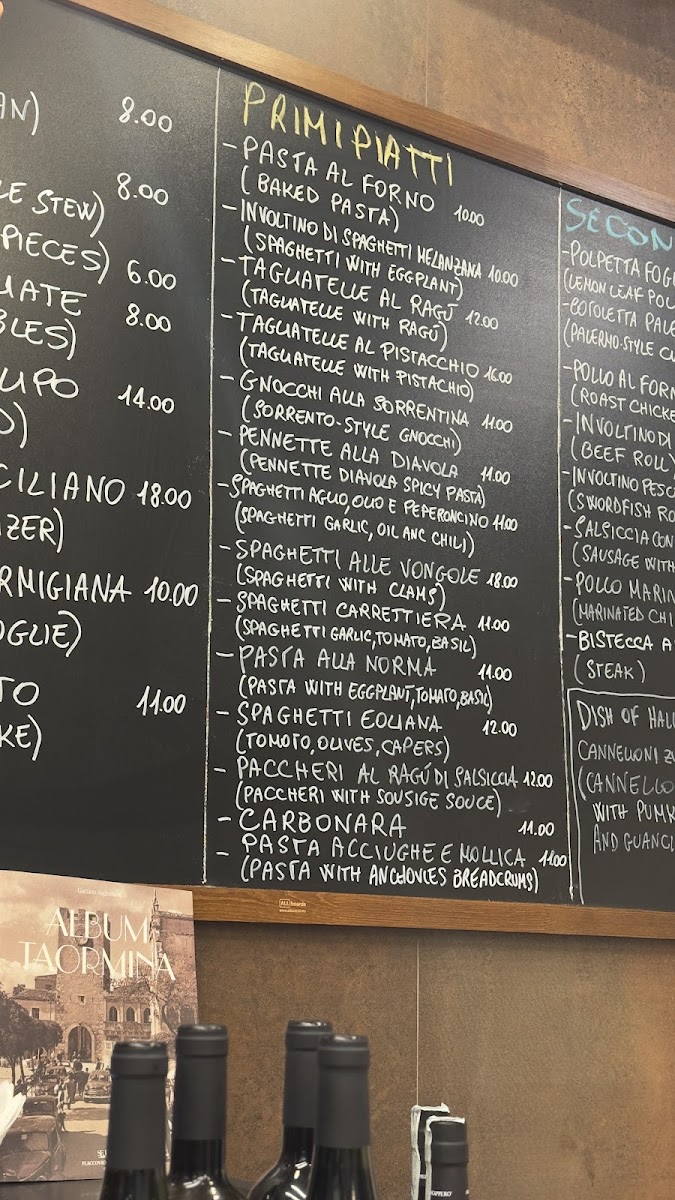 AN) 8.00
8.00
LE STEW)
PIECES) 6.00
MATE 8.00
BLES)
LIPO 14.00
CILIANO 18.00
ZER)
RMIGIANA 10.00
OGLIE)
TO 11.00
KE)
PRIMI PIATTI
- PASTA AL FORNO 10.00
(BAKED PASTA)
- INVOLTINO DI SPAGHETTI MELANZANA 10.00
(SPAGHETTI WITH EGGPLANT)
- TAGLIATELLE AL RAGÚ 12.00
(TAGLIATELLE WITH RAGÚ)
- TAGLIATELLE AL PISTACCHIO 16.00
(TAGLIATELLE WITH PISTACHIO)
- GNOCCHI ALLA SORRENTINA 11.00
(SORRENTO-STYLE GNOCCHI)
- PENNETTE ALLA DIAVOLA 11.00
(PENNETTE DIAVOLA SPICY PASTA)
- SPAGHETTI AGLIO, OLIO E PEPERONCINO 11.00
(SPAGHETTI GARLIC, OIL ANC CHILI)
- SPAGHETTI ALLE VONGOLE 18.00
(SPAGHETTI WITH CLAMS)
- SPAGHETTI CARRETTIERA 11.00
(SPAGHETTI GARLIC, TOMATO, BASIL)
- PASTA ALLA NORMA 11.00
(PASTA WITH EGGPLANT, TOMATO, BASIL)
- SPAGHETTI EOLIANA 12.00
(TOMOTO, OLIVES, CAPERS)
- PACCHERI AL RAGÚ DI SALSICCIA 12.00
(PACCHERI WITH SOUSIGE SOUCE)
- CARBONARA 11.00
- PASTA ACCIUGHE E MOLLICA 11.00
(PASTA WITH ANCHOVIES BREADCRUMS)
SECON
- POLPETTA FOGL
(LEMON LEAF POL
- COTOLETTA PALE
(PALERMO-STYLE CU
- POLLO AL FORN
(ROAST CHICKE
- INVOLTINO DI
(BEEF ROLL)
- INVOLTINO PESC
(SWORDFISH RO
- SALSICCIA CON
(SAUSAGE WITH
- POLLO MARIN
(MARINATED CHI
- BISTECCA A
(STEAK)
DISH OF HAL
CANNELLONI ZU
(CANNELLO
WITH PUMK
AND GUANCI
ALLboards
ALBUM
TAORMINA